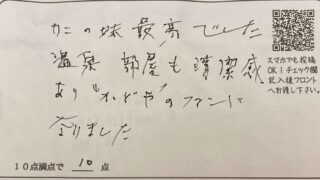 カニの味最高でした
温泉 部屋も清潔感
あり"かどや"のファンに
なりました
スマホでも投稿
OK！チェック欄
記入後フロント
へお渡し下さい。
10点満点で 10 点